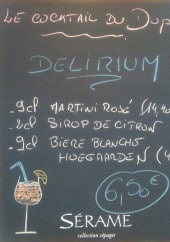 LE COCKTAIL DU DUP
DELIRIUM
_9cl MARTINI ROSÉ (14,4
_2cl SIROP DE CITRON
_9cl BIERE BLANCHE
HOEGAARDEN (4
6,50€
SÉRAME
collection cépages